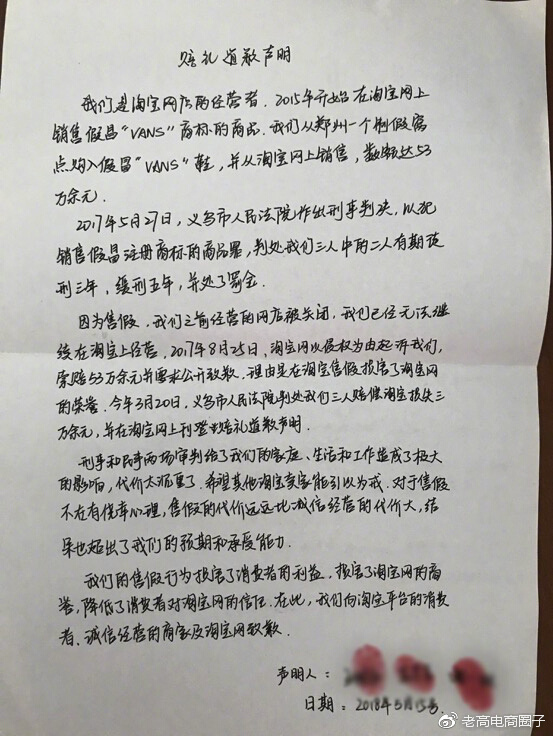 赔礼道歉声明
我们是淘宝网店的经营者，2015年开始在淘宝网上
销售假冒“VANS”商标的商品。我们从郑州一个制假窝
点购入假冒“VANS”鞋，并从淘宝网上销售，数额达53
万余元。
2017年5月27日，义乌市人民法院作出刑事判决，以犯
销售假冒注册商标的商品罪，判处我们三人中的二人有期徒
刑三年，缓刑五年，并处了罚金。
因为售假，我们之前经营的网店被关闭，我们已经无法继
续在淘宝上经营。2017年8月25日，淘宝网以侵权为由起诉我们，
索赔53万余元并要求公开致歉，理由是在淘宝售假损害了淘宝网
的荣誉。今年3月20日，义乌市人民法院判处我们三人赔偿淘宝损失三
万余元，并在淘宝网上刊登赔礼道歉声明。
刑事和民事两场审判给了我们的家庭、生活和工作造成了极大
的影响，代价太沉重了。希望其他淘宝卖家能引以为戒。对于售假
不在有侥幸心理，售假的代价远远比诚信经营的代价大，结
果也超出了我们的预期和承受能力。
我们的售假行为损害了消费者的利益，损害了淘宝网的商
誉，降低了消费者对淘宝网的信任。在此，我们向淘宝平台的消费
者、诚信经营的商家及淘宝网致歉。
声明人：
日期：2018年5月15号.
老高电商圈子